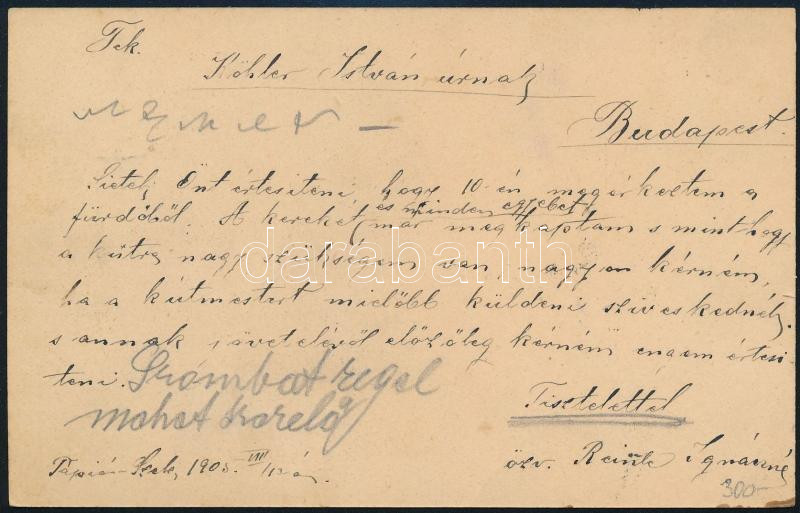 Tek.
Köhler István úrnak
Budapest.
Sietek Önt értesiteni hogy 10-én megérkeztem a
fürdőből. A kereket és minden egyebet már meg kaptam s mint hogy
a kútra nagy szükségem van, nagyon kérném,
ha a kútmestert mielőbb küldeni sziveskednék,
s annak jöveteléről előzőleg kérném engem értesi-
teni. Szombat regel
mohat szerelő
Tisztelettel
Tápió-Szele, 1903. VIII/12 én
özv. Ignáczné
300-
darabanth